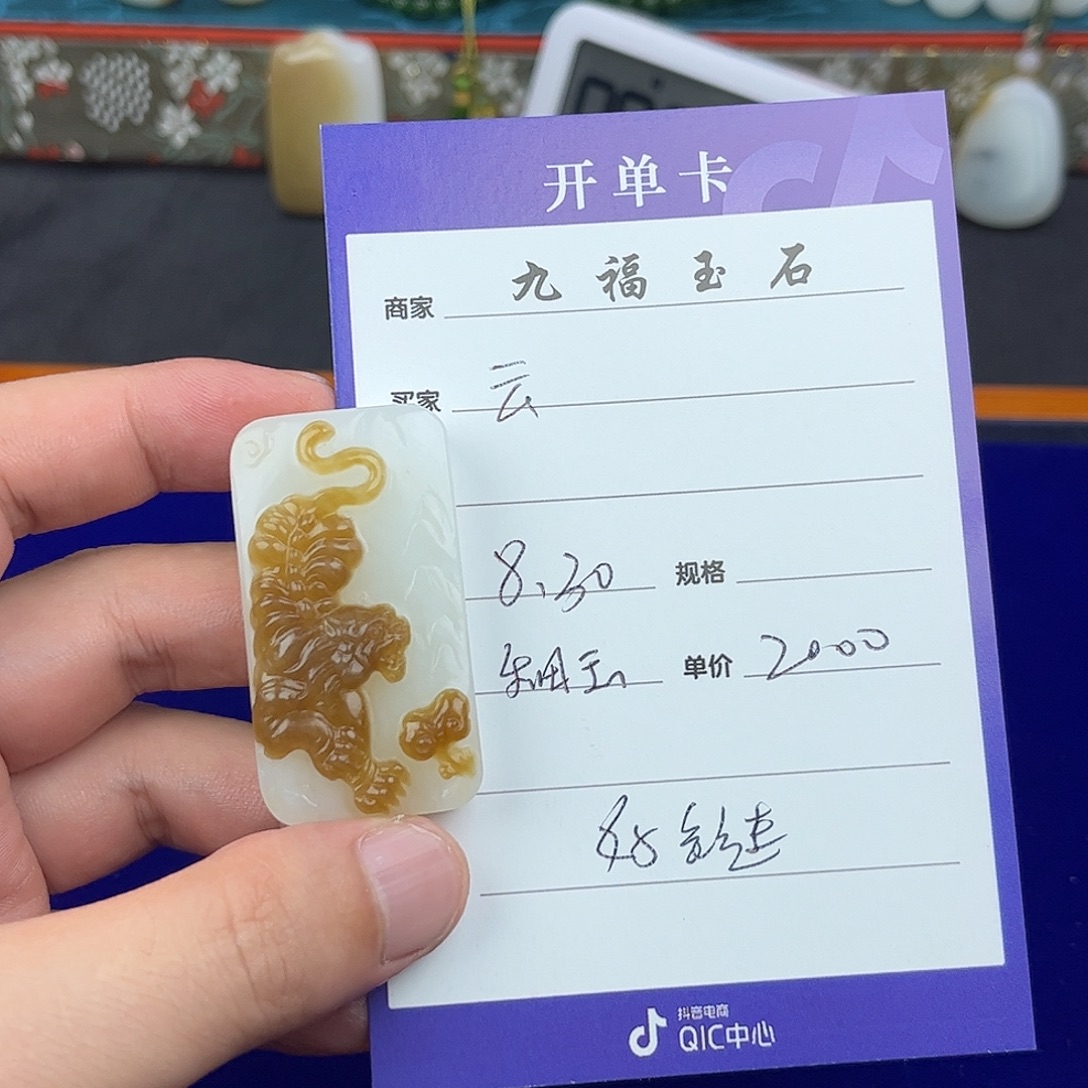 开单卡
商家 九福玉石
买家 云
8.30 规格
单价 2000
抖音电商
QIC中心